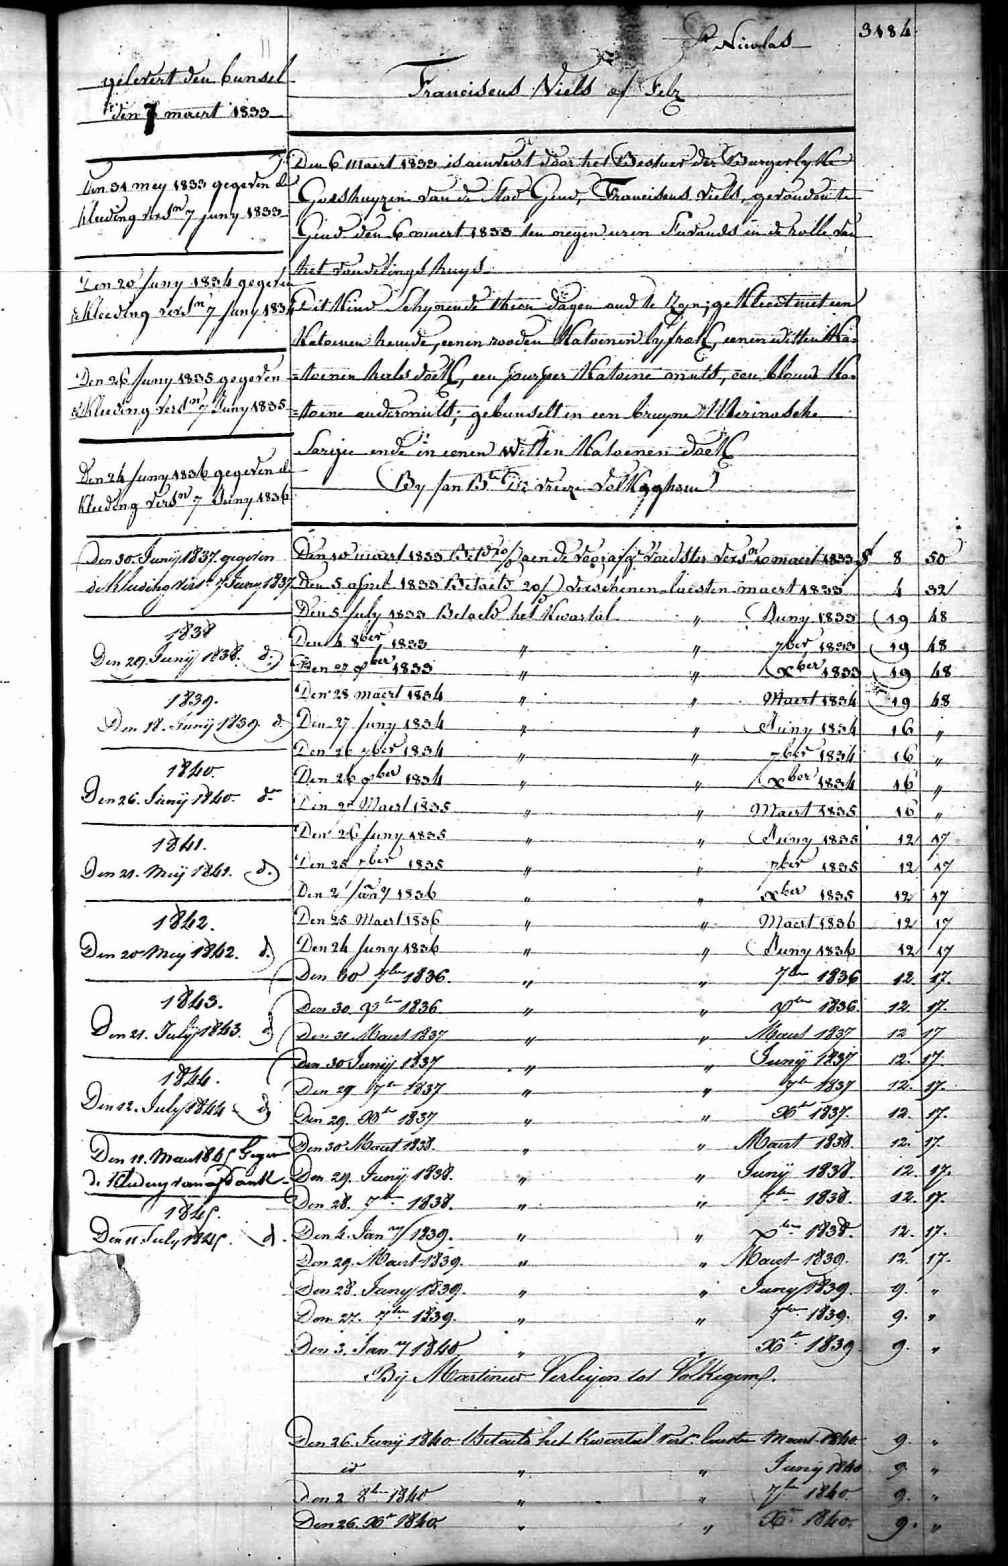 St Nicolas 3184
Franciscus Niels of Felz
gelevert den bunsel
den 7 maert 1833
Den 31 mey 1833 gegeven de
kleeding versn 7 juny 1833
Den 20 juny 1834 gegeven
de kleeding versn 7 juny 1834
Den 26 juny 1835 gegeven
de kleeding versn 7 juny 1835
Den 24 juny 1836 gegeven de
kleeding versn 7 juny 1836
Den 30. Junij 1837 gegeven
de kleeding versn 7 Juny 1837
1838
Den 29. Junij 1838. do
1839.
Den 18. Junij 1839. d.
1840.
Den 26. Junij 1840. do
1841.
Den 21. Meij 1841. d.
1842.
Den 20 Meij 1842. d.
1843.
Den 21. Julij 1843. d
1844.
Den 12. July 1844 d
Den 11. Maert 1845 Gegeven
de Kleding van
1845.
Den 11 July 1845. d.
Den 6 maert 1833 is aenveert door het Bestuer der Burgerlyke
Godshuyzen van de Stad Gend, Franciscus Niels, gevonden te
Gend den 6 maert 1833 ten negen uren savonds in de rolle van
het vondelings huys
Dit kind schynende thien dagen oud te zyn; gekleed met een
katoenen hemde, eenen rooden katoenen lyfrok, eenen witten ka=
=toenen hals doek, een purper katoene muts, een blauwe ka=
=toene ondermuts, gebunselt in een bruyne Merinosche
Sargie ende in eenen witten katoenen doek
By Jan Bte De Vrieze Volkeghem
Den 10 maert 1833 Betd aen de voorafge voedster versn 10 maert 1833 f 8 50
Den 5 april 1833 Betaeld 20/ verschenen luesten maert 1833 4 32
Den 5 July 1833 Betaeld het Kwartal " Juny 1833 19 48
Den 4 8ber 1833 " " 7ber 1833 19 48
Den 27 xber 1833 " " xber 1833 19 48
Den 28 maert 1834 " " Maert 1834 19 48
Den 27 juny 1834 " " Juny 1834 16 "
Den 26 7ber 1834 " " 7ber 1834 16 "
Den 26 xber 1834 " " xber 1834 16 "
Den 27 Maert 1835 " " Maert 1835 16 "
Den 26 juny 1835 " " Juny 1835 12 17
Den 25 7ber 1835 " " 7ber 1835 12 17
Den 2 Jany 1836 " xber 1835 12 17
Den 25 Maert 1836 " " Maert 1836 12 17
Den 24 juny 1836 " " Juny 1836 12 17
Den 30 7ber 1836. " " 7ber 1836 12. 17.
Den 30. xber 1836 " " xber 1836. 12. 17.
Den 31 Maert 1837 " " Maert 1837 12 17
Den 30 Junij 1837 " " Junij 1837 12. 17.
Den 29 7br 1837 " " 7br 1837 12. 17.
Den 29. Xbr 1837 " " Xbr 1837. 12. 17.
Den 30 Maert 1838. " " Maert 1838. 12. 17
Den 29. Junij 1838. " " Junij 1838. 12. 17.
Den 28. 7br 1838. " " 7br 1838 12. 17.
Den 4. Jany 1839. " " xber 1838. 12. 17.
Den 29. Maert 1839. " " Maert 1839. 12. 17.
Den 28. Juny 1839. " " Juny 1839. 9. "
Den 27. 7ber 1839. " " 7ber 1839. 9. "
Den 3. Jany 1840 " " Xbr 1839 9. "
Bij Martinus Verleijen tot Volkegem.
Den 26. Junij 1840 Betaeld het Kwartael versn luesten Maert 1840 9. "
id " " Junij 1840 9 "
Den 2 8br 1840 " " 7br 1840 9. "
Den 26. Xbr 1840. " " Xbr 1840. 9. "